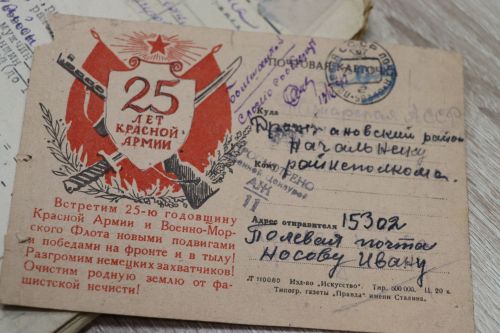 25
ЛЕТ
КРАСНОЙ
АРМИИ
Встретим 25-ю годовщину
Красной Армии и Военно-Мор-
ского Флота новыми подвигами
и победами на фронте и в тылу!
Разгромим немецких захватчиков!
Очистим родную землю от фа-
шистской нечисти!
ПОЧТОВАЯ КАРТОЧКА
СССР
Куда
АССР
район
Начальнику
Кому
райисполкома.
11
Адрес отправителя 15302
Полевая почта
Носову Ивану
Изд-во "Искусство". Тир. 500 000. Ц. 20 к.
Типогр. газеты "Правда" имени Сталина.